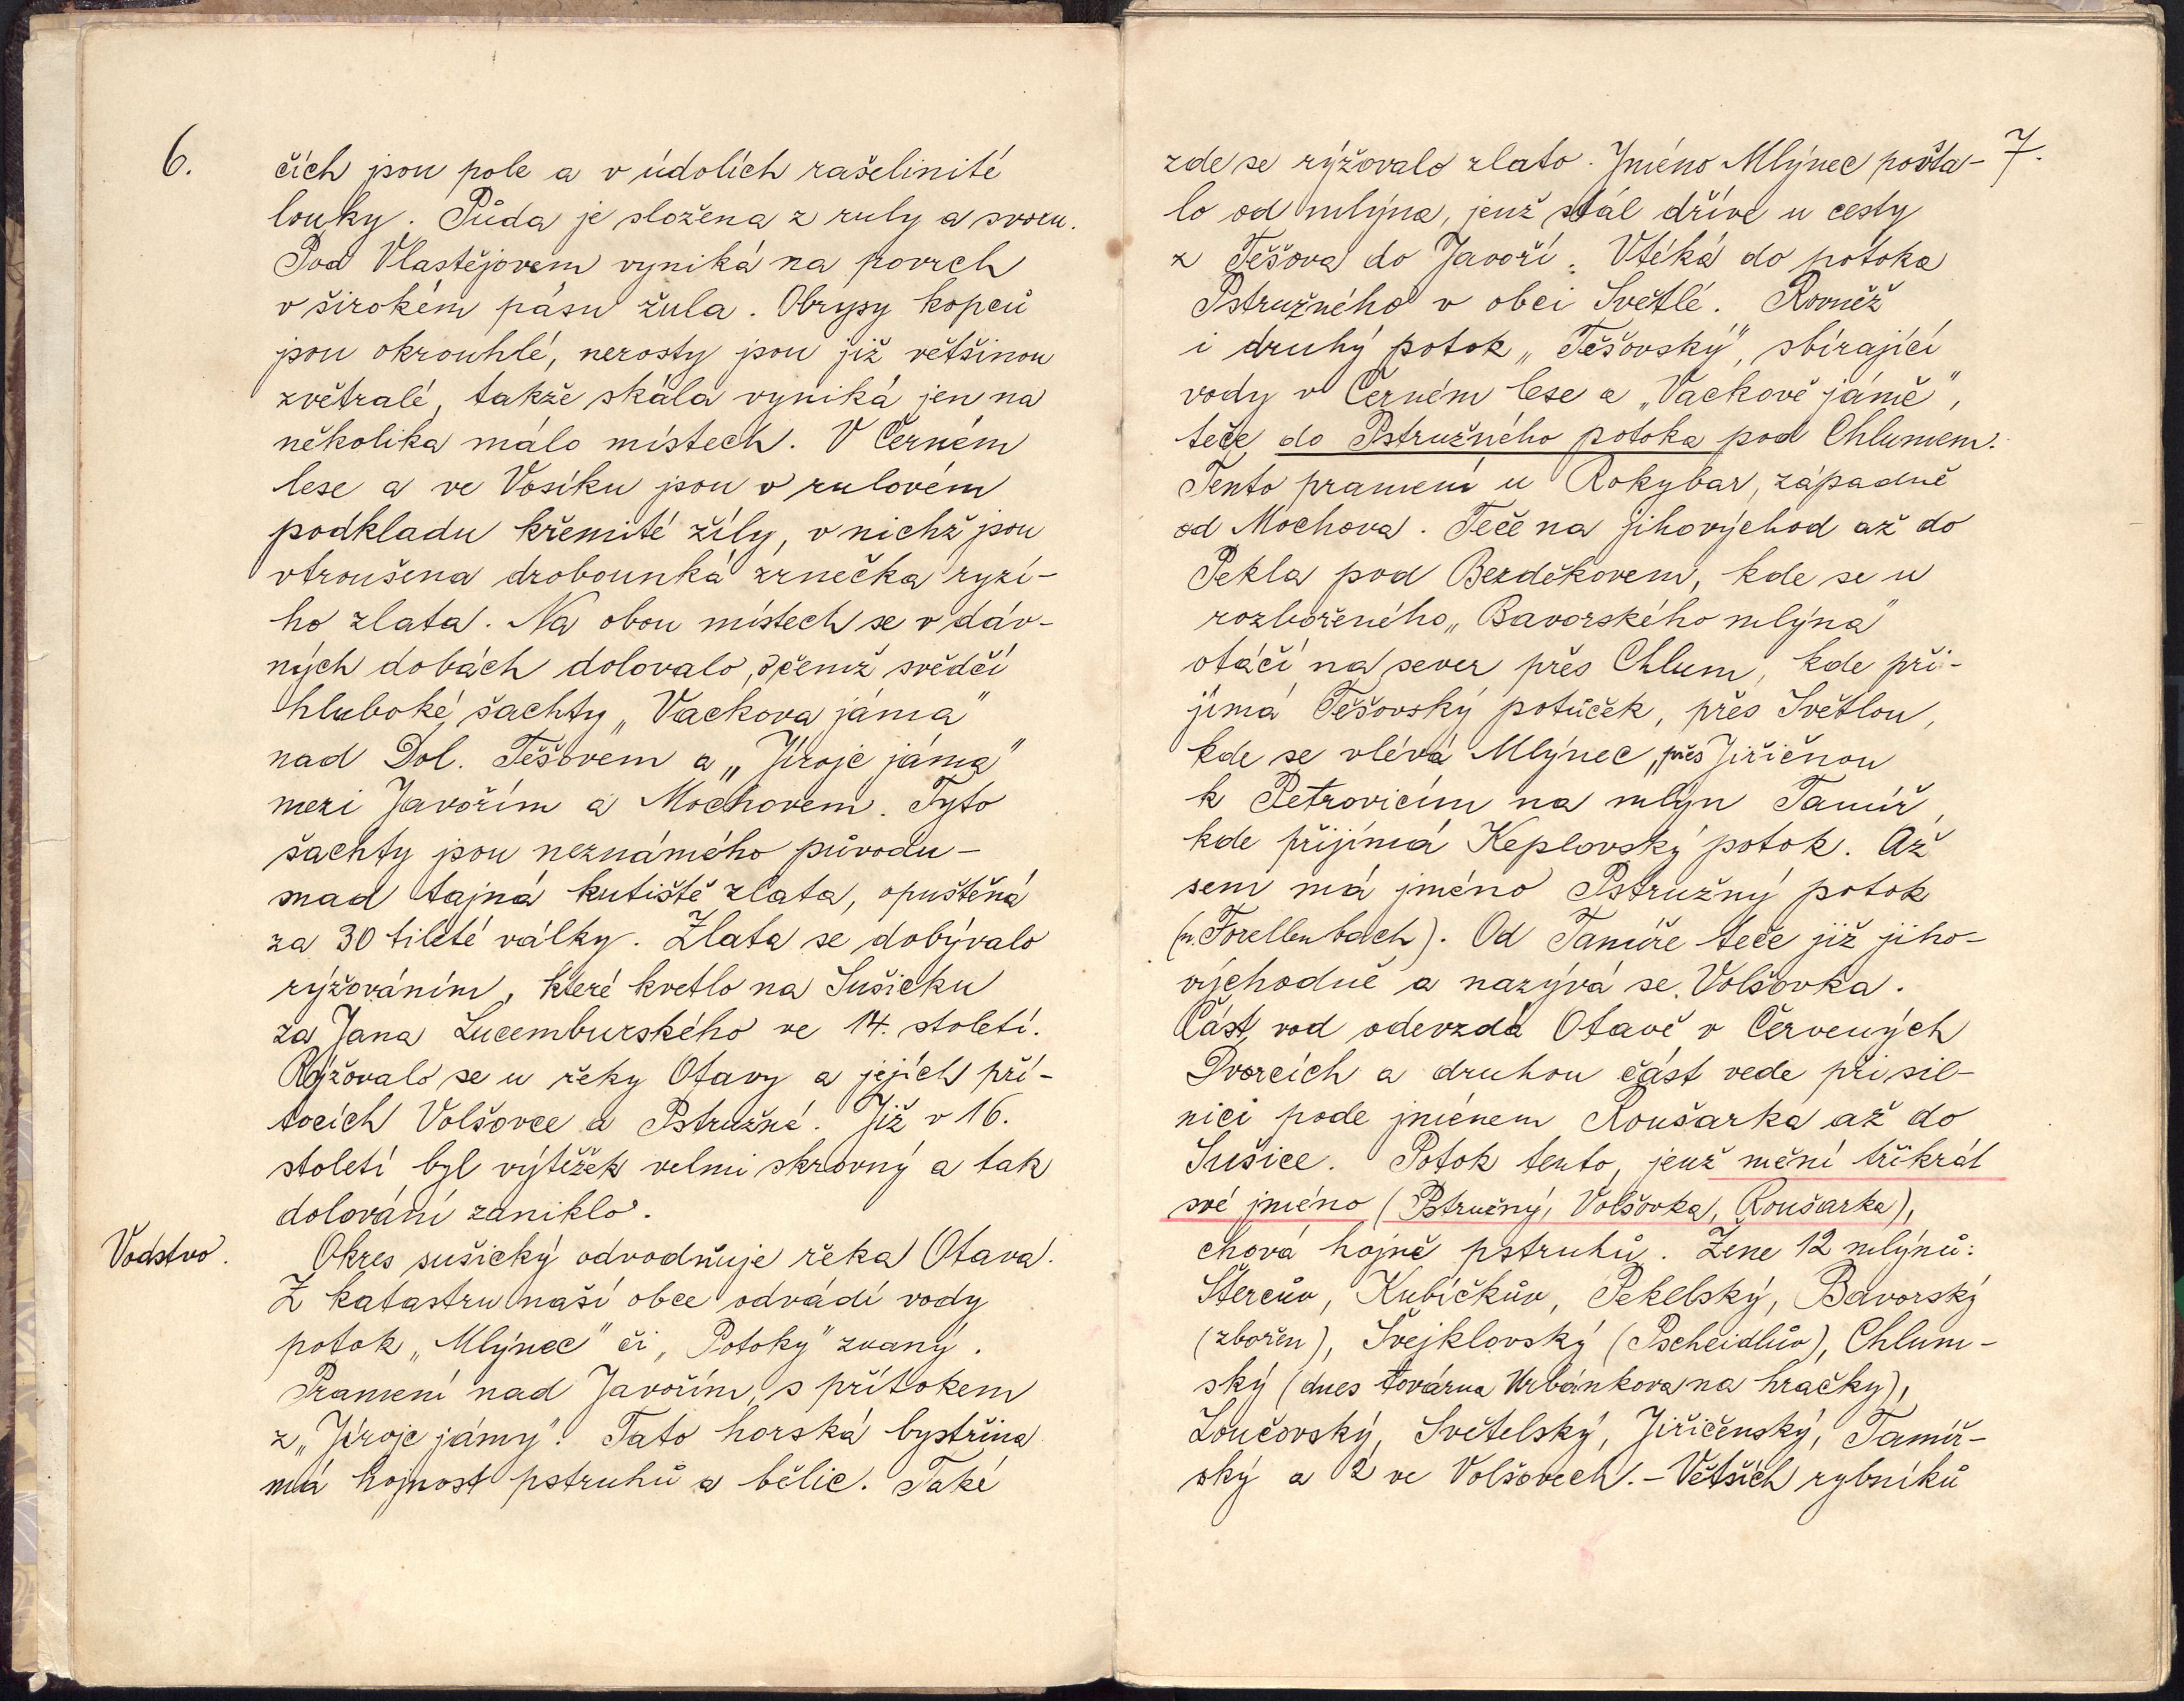 6.
čích jsou pole a v údolích rašelinité
louky. Půda je složena z ruly a svoru.
Pod Vlastějovem vyniká na povrch
v širokém pásu žula. Obrysy kopců
jsou okrouhlé, nerosty jsou již většinou
zvětralé, takže skála vyniká jen na
několika málo místech. V Černém
lese a ve Vosíku jsou v rulovém
podkladu křemité žíly, v nichž jsou
vtroušena drobounká zrnečka ryzí-
ho zlata. Na obou místech se v dáv-
ných dobách dolovalo, o čemž svědčí
hluboké šachty „Vackova jáma"
nad Dol. Těšovem a „Jíroje jáma"
mezi Javořím a Mochovem. Tyto
šachty jsou neznámého původu -
snad tajná kutiště zlata, opuštěná
za 30 tileté války. Zlata se dobývalo
rýžováním, které kvetlo na Sušicku
za Jana Lucemburského ve 14. století.
Rýžovalo se u řeky Otavy a jejích pří-
tocích Volšovce a Pstružné. Již v 16.
století byl výtěžek velmi skrovný a tak
dolování zaniklo.
Vodstvo.
Okres sušický odvodňuje řeka Otava.
Z katastru naší obce odvádí vody
potok „Mlýnec" či „Potoky" zvaný.
Pramení nad Javořím, s přítokem
z „Jíroje jámy". Tato horská bystřina
má hojnost pstruhů a bělic. Také
7.
zde se rýžovalo zlato. Jméno Mlýnec povsta-
lo od mlýna, jenž stál dříve u cesty
z Těšova do Javoří. Vtéká do potoka
Pstružného v obci Světlé. Rovněž
i druhý potok „Těšovský", sbírající
vody v Černém lese a „Vackově jámě",
teče do Pstružného potoka pod Chlumem.
Tento pramení u Rokybar, západně
od Mochova. Teče na jihovýchod až do
Pekla pod Bezděkovem, kde se u
rozbořeného „Bavorského mlýna"
otáčí na sever přes Chlum, kde při-
jímá Těšovský potůček, přes Světlou,
kde se vlévá Mlýnec, přes Jiřičnou
k Petrovicím na mlýn Tamíř,
kde přijímá Keplovský potok. Až
sem má jméno Pstružný potok
(n. Forellenbach). Od Tamíře teče již jiho-
východně a nazývá se Volšovka.
Část vod odevzdá Otavě v Červených
Dvorcích a druhou část vede při sil-
nici pode jménem Roušarka až do
Sušice. Potok tento, jenž mění třikrát
své jméno (Pstružný, Volšovka, Roušarka),
chová hojně pstruhů. Žene 12 mlýnů:
Štercův, Kubíčkův, Pekelský, Bavorský
(zbořen), Švejklovský (Pscheidlův), Chlum-
ský (dnes továrna Urbánkova na hračky),
Loučovský, Světelský, Jiřičenský, Tamíř-
ský a 2 ve Volšovech. - Větších rybníků